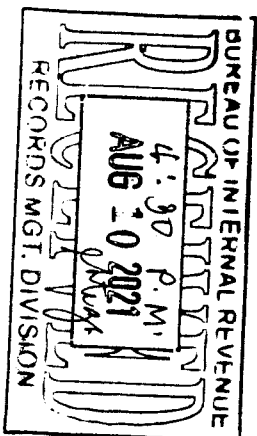 BUREAU OF INTERNAL REVENUE
RECEIVED
4:30 P.M.
AUG 10 2021
RECORDS MGT. DIVISION